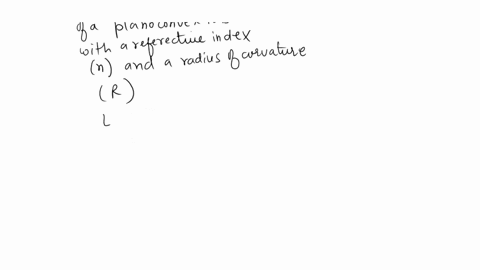 of a planoconvex
with a referective index
(n) and a radius of curvature
(R)
L